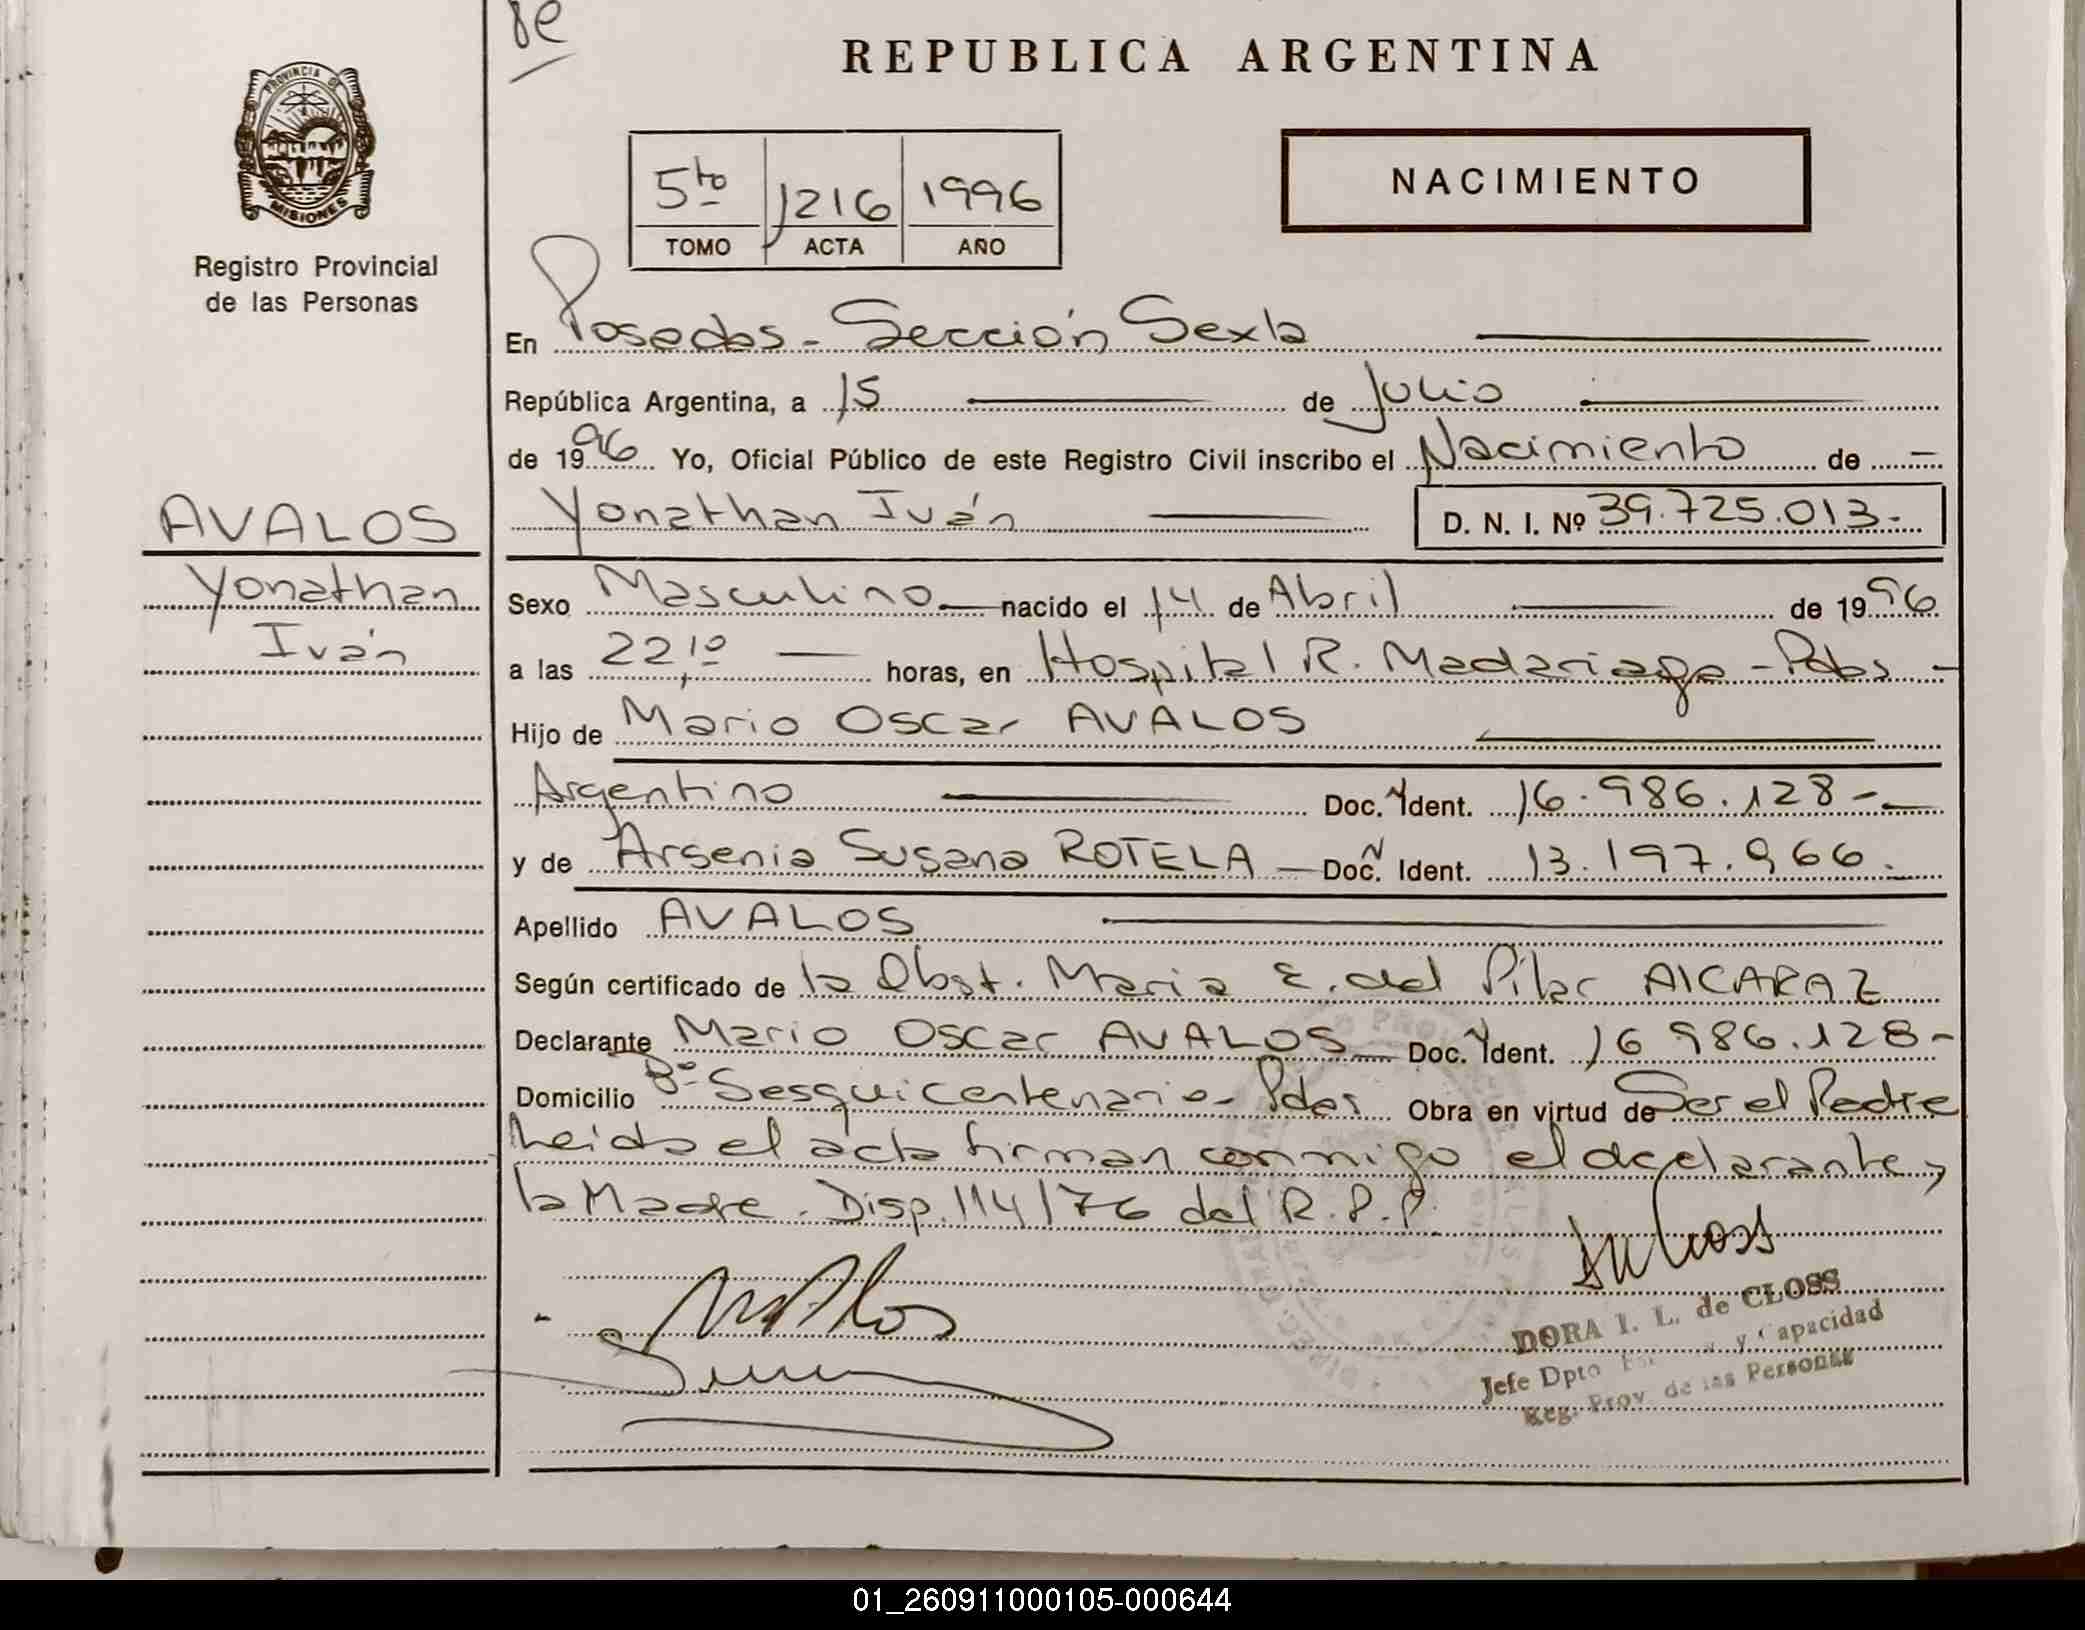 REPUBLICA ARGENTINA
PROVINCIA DE
MISIONES
Registro Provincial
de las Personas
5to 1216 1996
TOMO ACTA AÑO
NACIMIENTO
En Posadas - Sección Sexta
República Argentina, a 15 de Julio
de 1996 Yo, Oficial Público de este Registro Civil inscribo el Nacimiento de
AVALOS
Yonathan
Iván
Yonathan Iván D. N. I. Nº 39.725.013-
Sexo Masculino nacido el 14 de Abril de 1996
a las 22,10 horas, en Hospital R. Madariaga - Pdas -
Hijo de Mario Oscar AVALOS
Argentino Doc. Ident. 16.986.128-
y de Arsenia Susana ROTELA - Doc. Ident. 13.197.966.
Apellido AVALOS
Según certificado de la Obst. Maria E. del Pilar AlCARAZ
Declarante Mario Oscar AVALOS Doc. Ident. 16 986.128-
Domicilio Bº Sesquicentenario - Pdas Obra en virtud de Ser el Padre
Leida el acta firman conmigo el declarante y
la Madre. Disp. 114/76 del R.P.P.
DORA I. L. de CLOSS
Jefe Dpto y Capacidad
Reg. Prov. de las Personas
01_260911000105-000644